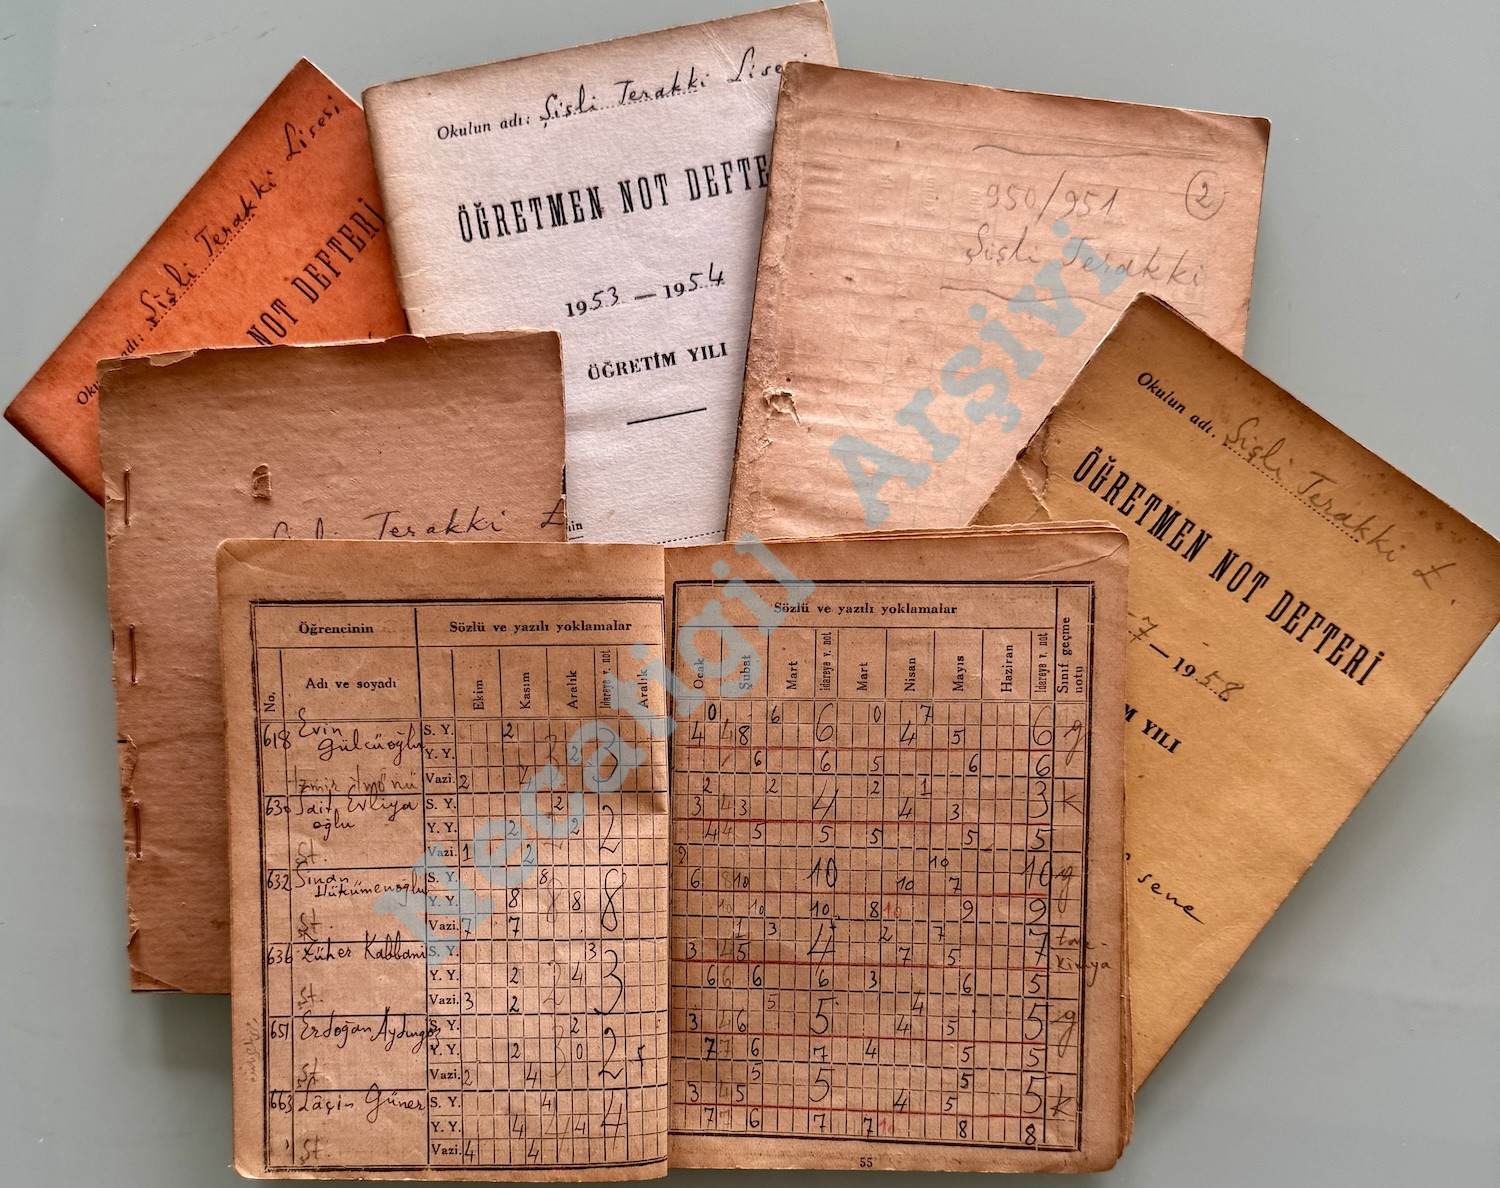 Okulun adı: Şişli Terakki Lisesi
NOT DEFTERİ
Okulun adı: Şişli Terakki Lisesi
ÖĞRETMEN NOT DEFTE
1953 — 1954
ÖĞRETİM YILI
950/951
2
Şişli Terakki
Okulun adı. Şişli Terakki L
ÖĞRETMEN NOT DEFTERİ
7 — 1958
M YILI
sene
Şişli Terakki L
Necatigil Arşivi
Öğrencinin
Sözlü ve yazılı yoklamalar
No.
Adı ve soyadı
Ekim
Kasım
Aralık
İdareye v. not
Aralık
618 Evin Gülcüoğlu
S. Y. 2
Y. Y. 2 3
Vazi. 2
630 Sait Evliya
oğlu
S. Y. 2
Y. Y. 2 2 2
Şt.
Vazi. 1 2
632 Sinan
Hükümenoğlu
S. Y. 8
Y. Y. 8 8 8
Şt.
Vazi. 7 7
636 Züher Kabbani
S. Y. 3
Y. Y. 2 4 3
Şt.
Vazi. 3 2
651 Erdoğan Aydıngöz
S. Y. 2
Y. Y. 2 0 2
Şt.
Vazi. 2 4
663 Lâçin Güner
S. Y. 4
Y. Y. 4 4 4
Şt.
Vazi. 4 4
Sözlü ve yazılı yoklamalar
Ocak
Şubat
Mart
İdareye v. not
Mart
Nisan
Mayıs
Haziran
İdareye v. not
Sınıf geçme
notu
0 6 6 0 7
4 48 4 5 6 g
6 6 5 6 6
2 2 2 1
3 43 4 4 3 3 K
44 5 5 5 5 5
10 10
6 10 10 7 10 g
10 10 10 8 10 9 9
1 3 4 2 7
3 45 7 5 7
66 6 6 3 6 5
5 5 4
3 46 4 5 5 g
77 6 7 4 5 5
5 5 5
3 45 4 5 5 K
7 6 7 7 8 8
55